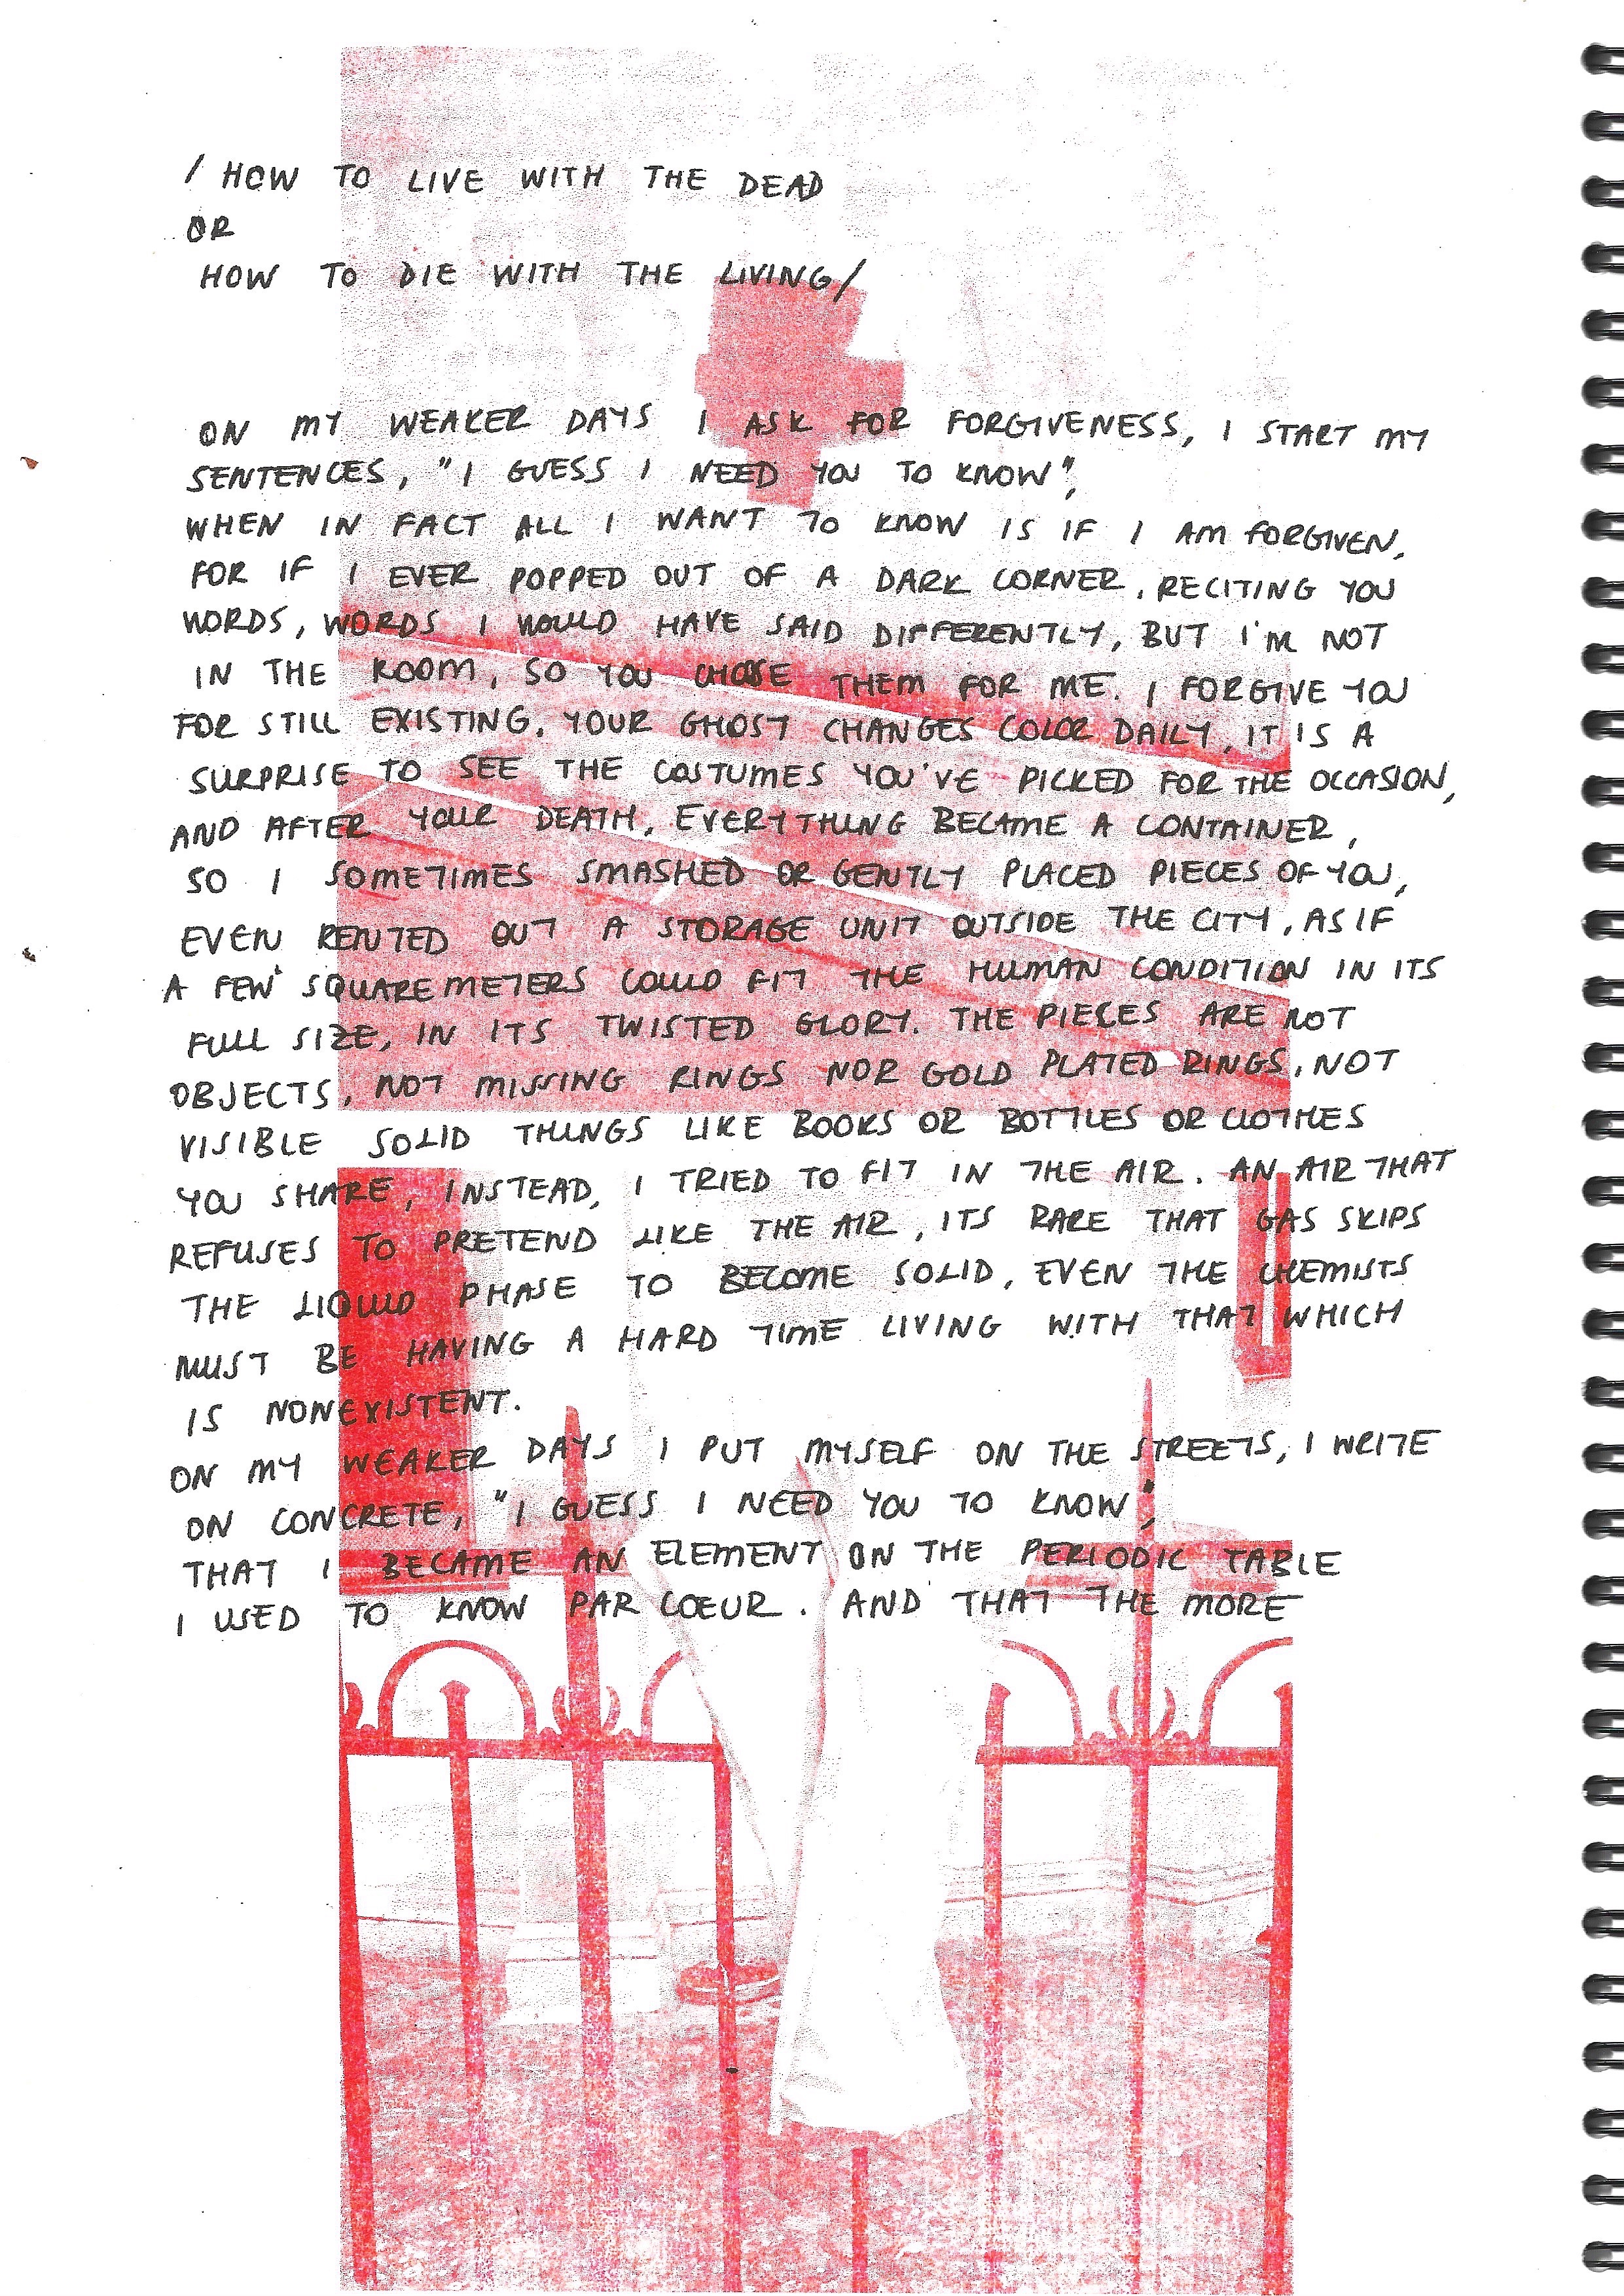 / HOW TO LIVE WITH THE DEAD
OR
HOW TO DIE WITH THE LIVING/
ON MY WEAKER DAYS I ASK FOR FORGIVENESS, I START MY
SENTENCES, "I GUESS I NEED YOU TO KNOW",
WHEN IN FACT ALL I WANT TO KNOW IS IF I AM FORGIVEN,
FOR IF I EVER POPPED OUT OF A DARK CORNER, RECITING YOU
WORDS, WORDS I WOULD HAVE SAID DIFFERENTLY, BUT I'M NOT
IN THE ROOM, SO YOU CHOSE THEM FOR ME. I FORGIVE YOU
FOR STILL EXISTING. YOUR GHOST CHANGES COLOR DAILY, IT IS A
SURPRISE TO SEE THE COSTUMES YOU'VE PICKED FOR THE OCCASION,
AND AFTER YOUR DEATH, EVERYTHING BECAME A CONTAINER,
SO I SOMETIMES SMASHED OR GENTLY PLACED PIECES OF YOU,
EVEN RENTED OUT A STORAGE UNIT OUTSIDE THE CITY, AS IF
A FEW SQUARE METERS COULD FIT THE HUMAN CONDITION IN ITS
FULL SIZE, IN ITS TWISTED GLORY. THE PIECES ARE NOT
OBJECTS, NOT MISSING RINGS NOR GOLD PLATED RINGS, NOT
VISIBLE SOLID THINGS LIKE BOOKS OR BOTTLES OR CLOTHES
YOU SHARE, INSTEAD, I TRIED TO FIT IN THE AIR. AN AIR THAT
REFUSES TO PRETEND LIKE THE AIR, ITS RARE THAT GAS SKIPS
THE LIQUID PHASE TO BECOME SOLID, EVEN THE CHEMISTS
MUST BE HAVING A HARD TIME LIVING WITH THAT WHICH
IS NONEXISTENT.
ON MY WEAKER DAYS I PUT MYSELF ON THE STREETS, I WRITE
ON CONCRETE, "I GUESS I NEED YOU TO KNOW",
THAT I BECAME AN ELEMENT ON THE PERIODIC TABLE
I USED TO KNOW PAR COEUR. AND THAT THE MORE